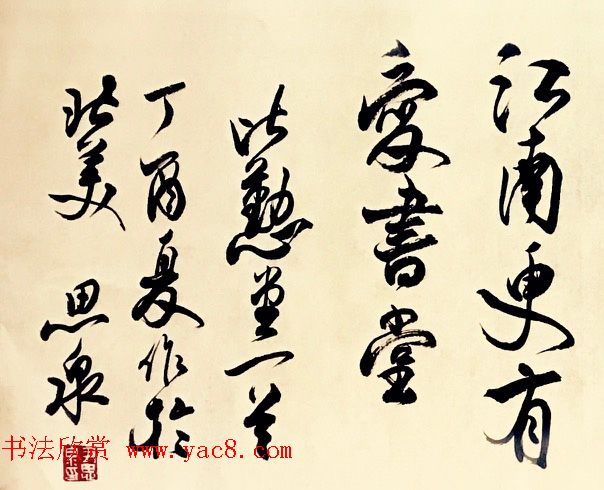 江南更有
愛書堂
堂一
丁酉夏作於
北美 思泉
书法欣赏 www.yac8.com